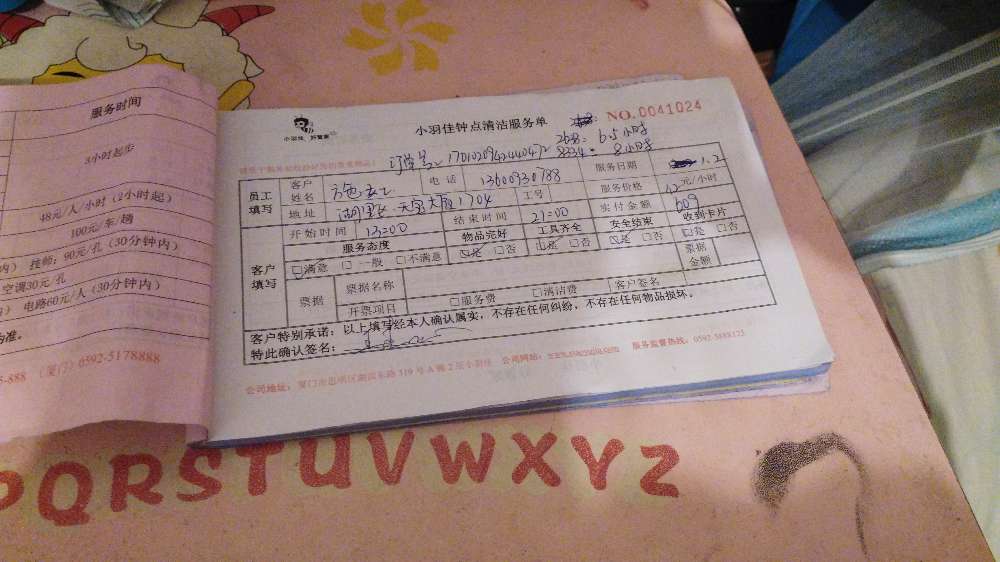 服务时间
3小时起步
48元/人/小时（2小时起）
100元/车/趟
挂师：90元/孔（30分钟内）
空调30元/孔
电路60元/人（30分钟内）
（厦门）0592-5178888
小羽佳 好管家
小羽佳钟点清洁服务单
NO.0041024
6.5小时
8小时
员工填写
客户姓名
电话 13600930788
服务日期 1.2
地址 湖里区 天宝大厦1704
工号
服务价格 元/小时
开始时间 13:00
结束时间 21:00
实付金额 609
客户填写
服务态度 物品完好 工具齐全 安全结束 收到卡片
□满意 □一般 □不满意 □是 □否 □是 □否 □是 □否 □是 □否
票据
票据名称
票据金额
开票项目 □服务费 □清洁费 客户签名
客户特别承诺：以上填写经本人确认属实，不存在任何纠纷，不存在任何物品损坏。
特此确认签名：
公司地址：厦门市思明区湖滨东路319号A幢2层小羽佳 公司网站： 服务监督热线：0592-5888123
PQRSTUVWXYZ